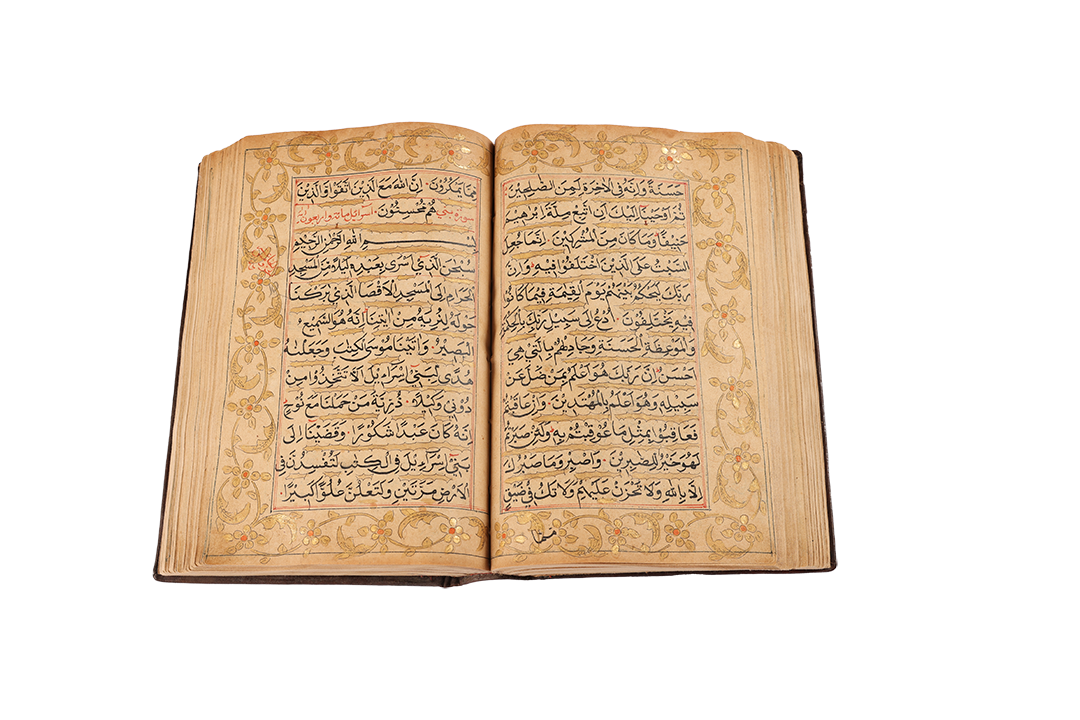 حَسَنَةً وَاِنَّهُ فِي الْاٰخِرَةِ لَمِنَ الصّٰلِحِيْنَ
ثُمَّ اَوْحَيْنَا اِلَيْكَ اَنِ اتَّبِعْ مِلَّةَ اِبْرٰهِيْمَ
حَنِيْفًا وَمَا كَانَ مِنَ الْمُشْرِكِيْنَ اِنَّمَا جُعِلَ
السَّبْتُ عَلَى الَّذِيْنَ اخْتَلَفُوْا فِيْهِ وَاِنَّ
رَبَّكَ لَيَحْكُمُ بَيْنَهُمْ يَوْمَ الْقِيٰمَةِ فِيْمَا كَانُوْا
فِيْهِ يَخْتَلِفُوْنَ اُدْعُ اِلٰى سَبِيْلِ رَبِّكَ بِالْحِكْمَةِ
وَالْمَوْعِظَةِ الْحَسَنَةِ وَجَادِلْهُمْ بِالَّتِيْ هِيَ
اَحْسَنُ اِنَّ رَبَّكَ هُوَ اَعْلَمُ بِمَنْ ضَلَّ عَنْ
سَبِيْلِهِ وَهُوَ اَعْلَمُ بِالْمُهْتَدِيْنَ وَاِنْ عَاقَبْتُمْ
فَعَاقِبُوْا بِمِثْلِ مَا عُوْقِبْتُمْ بِهِ وَلَئِنْ صَبَرْتُمْ
لَهُوَ خَيْرٌ لِلصّٰبِرِيْنَ وَاصْبِرْ وَمَا صَبْرُكَ
اِلَّا بِاللّٰهِ وَلَا تَحْزَنْ عَلَيْهِمْ وَلَا تَكُ فِيْ ضَيْقٍ
مما
مِمَّا يَمْكُرُوْنَ اِنَّ اللّٰهَ مَعَ الَّذِيْنَ اتَّقَوْا وَّالَّذِيْنَ
سورة بني هُمْ مُحْسِنُوْنَ اسرائيل مائة واربعون
بِسْمِ اللّٰهِ الرَّحْمٰنِ الرَّحِيْمِ
سُبْحٰنَ الَّذِيْ اَسْرٰى بِعَبْدِهٖ لَيْلًا مِّنَ الْمَسْجِدِ
الْحَرَامِ اِلَى الْمَسْجِدِ الْاَقْصَا الَّذِيْ بٰرَكْنَا
حَوْلَهُ لِنُرِيَهُ مِنْ اٰيٰتِنَا اِنَّهُ هُوَ السَّمِيْعُ
الْبَصِيْرُ وَاٰتَيْنَا مُوْسَى الْكِتٰبَ وَجَعَلْنٰهُ
هُدًى لِّبَنِيْ اِسْرَاءِيْلَ اَلَّا تَتَّخِذُوْا مِنْ
دُوْنِيْ وَكِيْلًا ذُرِّيَّةَ مَنْ حَمَلْنَا مَعَ نُوْحٍ
اِنَّهُ كَانَ عَبْدًا شَكُوْرًا وَقَضَيْنَا اِلٰى
بَنِيْ اِسْرَاءِيْلَ فِي الْكِتٰبِ لَتُفْسِدُنَّ فِي
الْاَرْضِ مَرَّتَيْنِ وَلَتَعْلُنَّ عُلُوًّا كَبِيْرًا